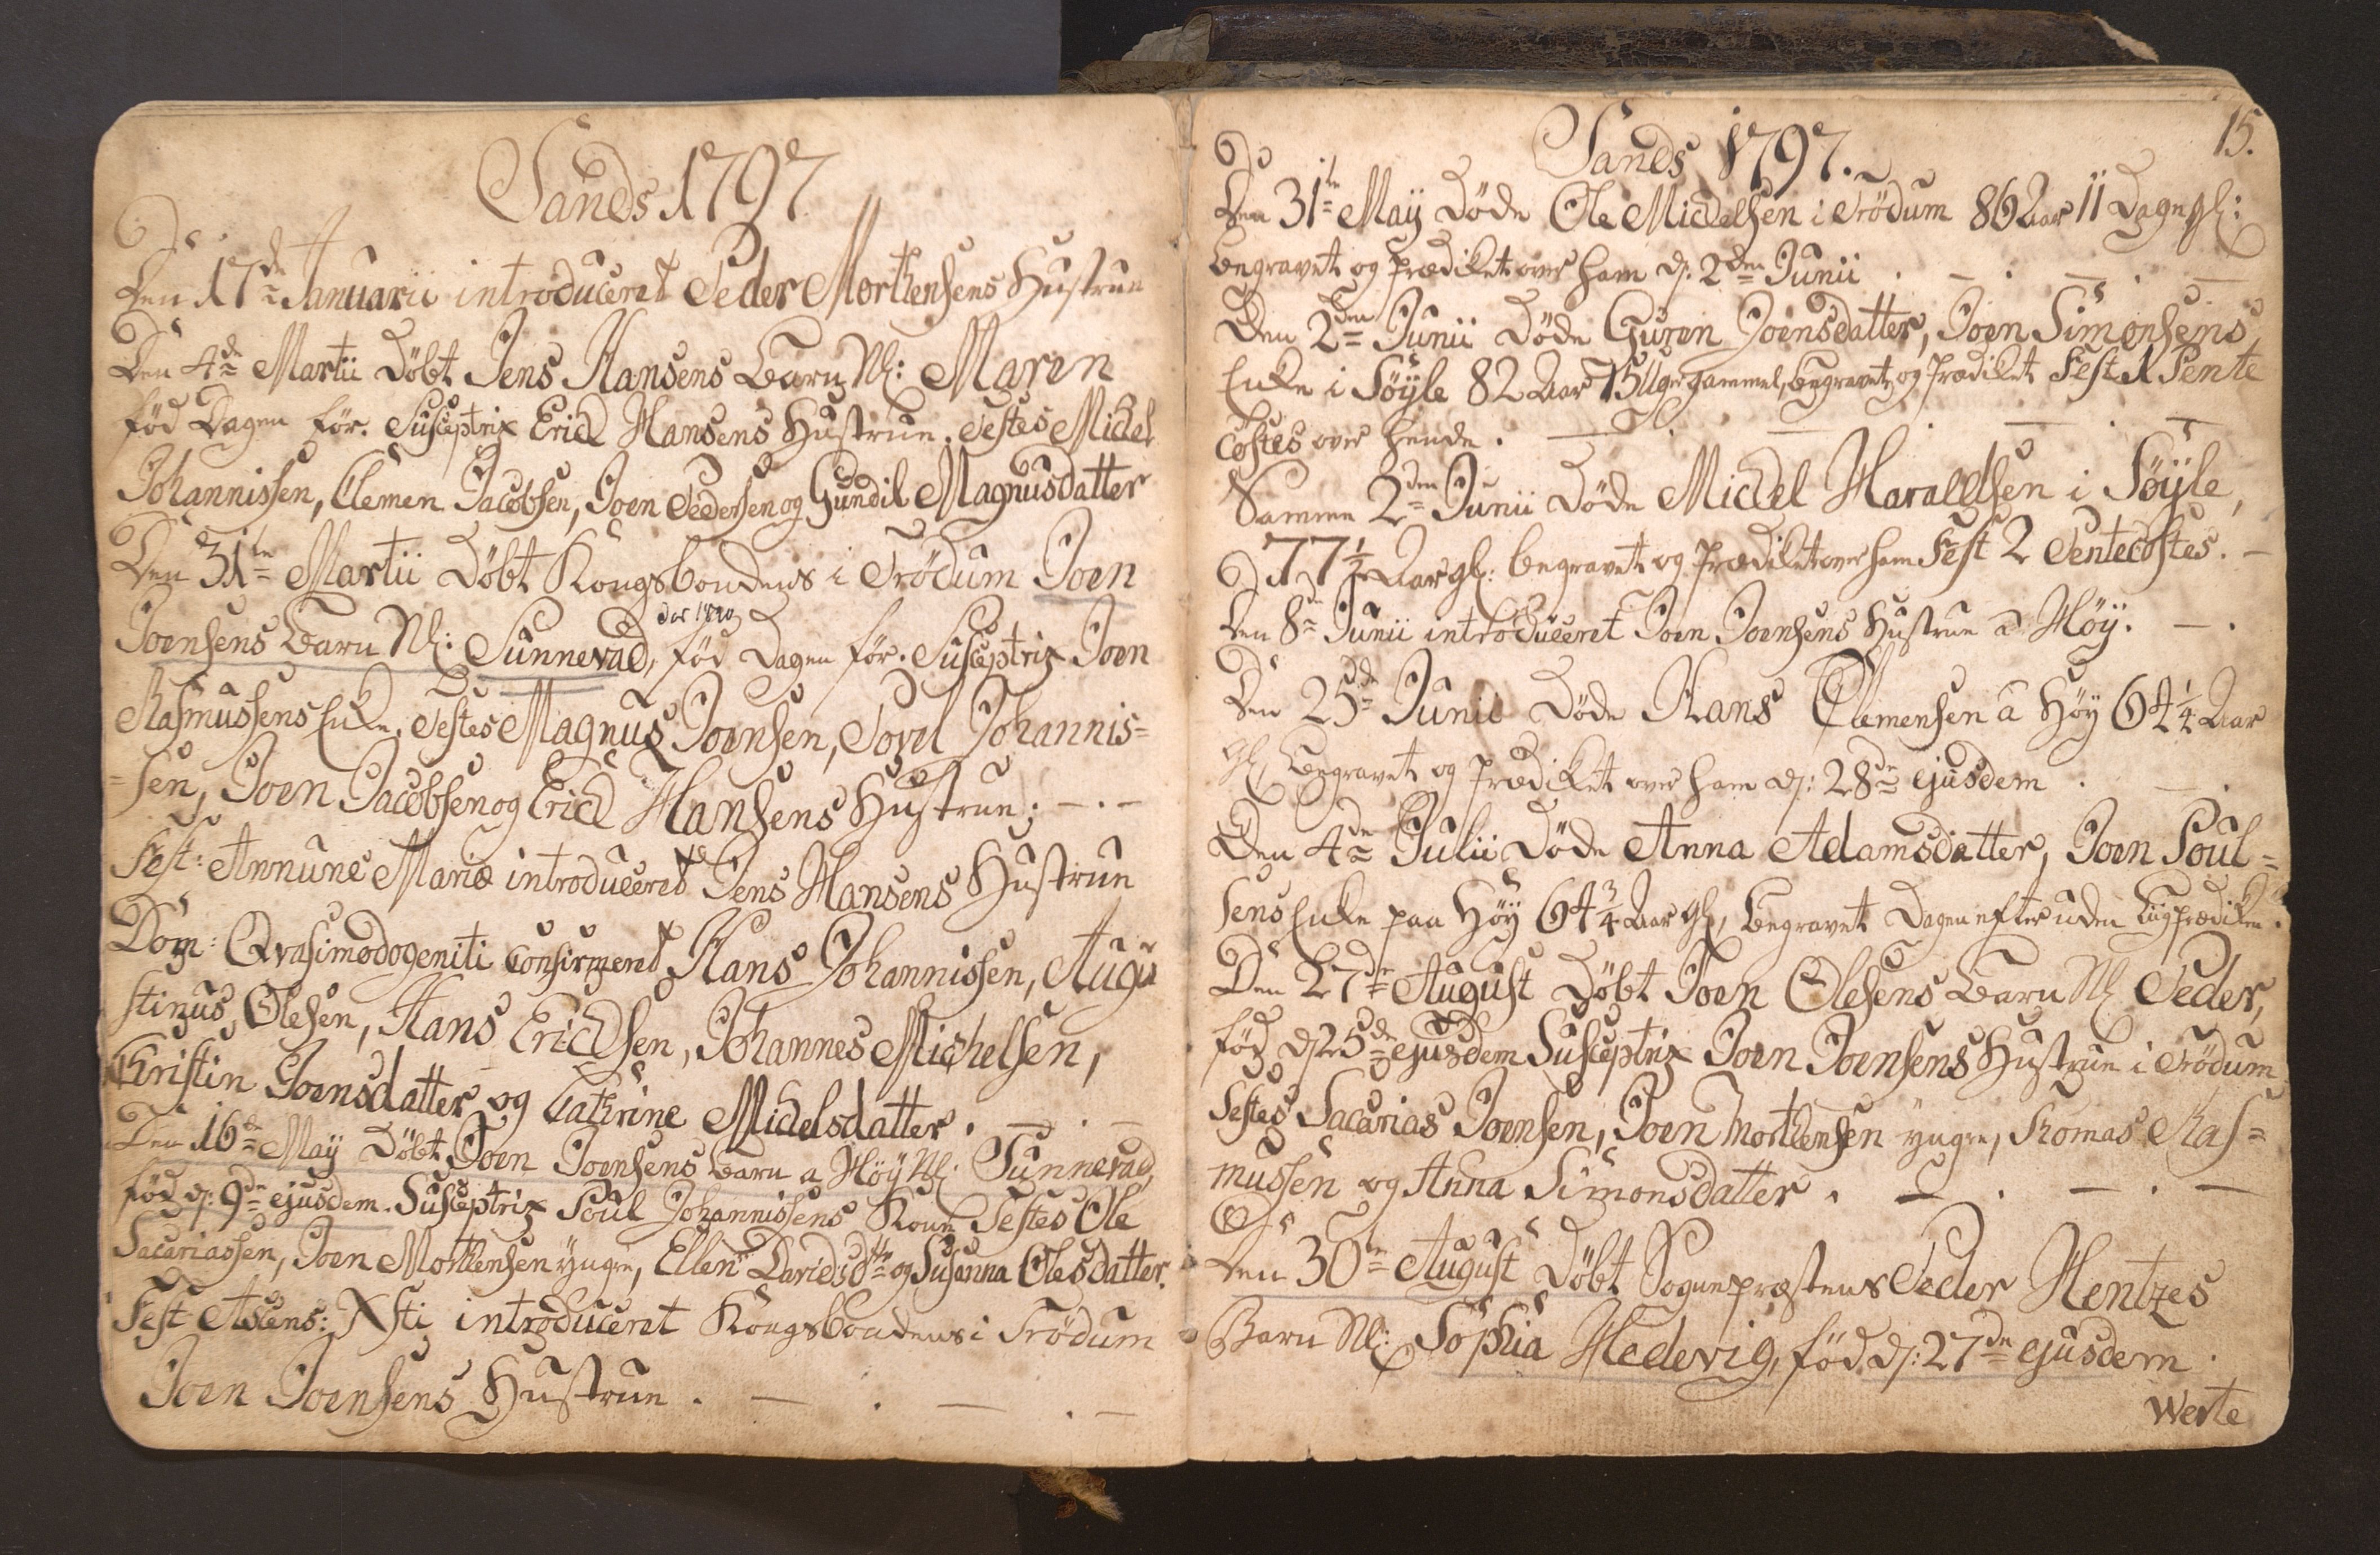 Sands 1797
Den 17de Januarii introduceret Peder Morthensens Hustrue
Den 4de Martii Döbt Jens Hansens Barn Nl: Maren
föd Dagen för. Susceptrix Erich Hansens Hustrue. Testes Michel
Johannissen, Clemen Jacobsen, Joen Pedersen og Gundil Magnusdatter
Den 31te Martii Döbt Kongsbondens i Trödum Joen
Joensens Barn Nl: Sunnevad, föd Dagen för. Susceptrix Joen
Rasmussens Enke. Testes Magnus Joensen, Povel Johannis=
=sen, Joen Jacobsen og Erich Hansens Hustrue; — . —
Fest: Annunc Mariæ introduceret Jens Hansens Hustrue
Dom: Qvasimodogeniti Confirmeret Hans Johannissen, Augu
stinus Olesen, Hans Erichsen, Johannes Michelsen,
Kristin Joensdatter og Cathrine Michelsdatter. — . —
Den 16de Maÿ Döbt Joen Joensens Barn a Höÿ Nl: Sunnevad,
föd d: 9de ejusdem. Susceptrix Poul Johannissens Kone Testes Ole
Sacariassen, Joen Morthensen yngre, Ellen Davidsdtr og Susanna Olesdatter.
Fest Ascens: Xsti introduceret Kongsbondens i Trödum
Joen Joensens Hustrue. — . — . —
15.
Sands 1797.
Den 31te Maÿ Döde Ole Michelsen i Trödum 86 Aar 11 Dage gl:
begravet og Prædiket over ham d: 2den Junii . — . — . —
Den 2den Junii Döde Guren Joensdatter, Joen Simonsens
Enke i Söÿle 82 Aar 15 Uger gammel, begravet og Prædiket Fest 1 Pente
costes over hende. — . — . — . —
Samme 2den Junii Döde Michel Haraldsen i Söÿle,
77 1/2 Aar gl: begravet og Prædiket over ham Fest 2 Pentecostes. —
Den 8de Junii introduceret Joen Joensens Hustrue a Höÿ. — .
Den 25de Junii Döde Hans Clemensen a Höÿ 64 1/4 Aar
gl, begravet og Prædiket over ham d: 28de ejusdem . — .
Den 4de Julii Döde Anna Adamsdatter, Joen Poul=
sens Enke paa Höÿ 64 3/4 Aar gl, begravet Dagen efter uden Liigprædiken.
Den 27de August Döbt Joen Olesens Barn Nl Peder,
föd d. 25de ejusdem Susceptrix Joen Joensens Hustrue i Trödum
Testes Sacarias Joensen, Joen Morthensen yngre, Thomas Ras=
mussen og Anna Simonsdatter. — . — . —
Den 30te August Döbt Sognepræstens Peder Hentzes
Barn Nl: Sophia Hedevig, föd d: 27de ejusdem .
Verte